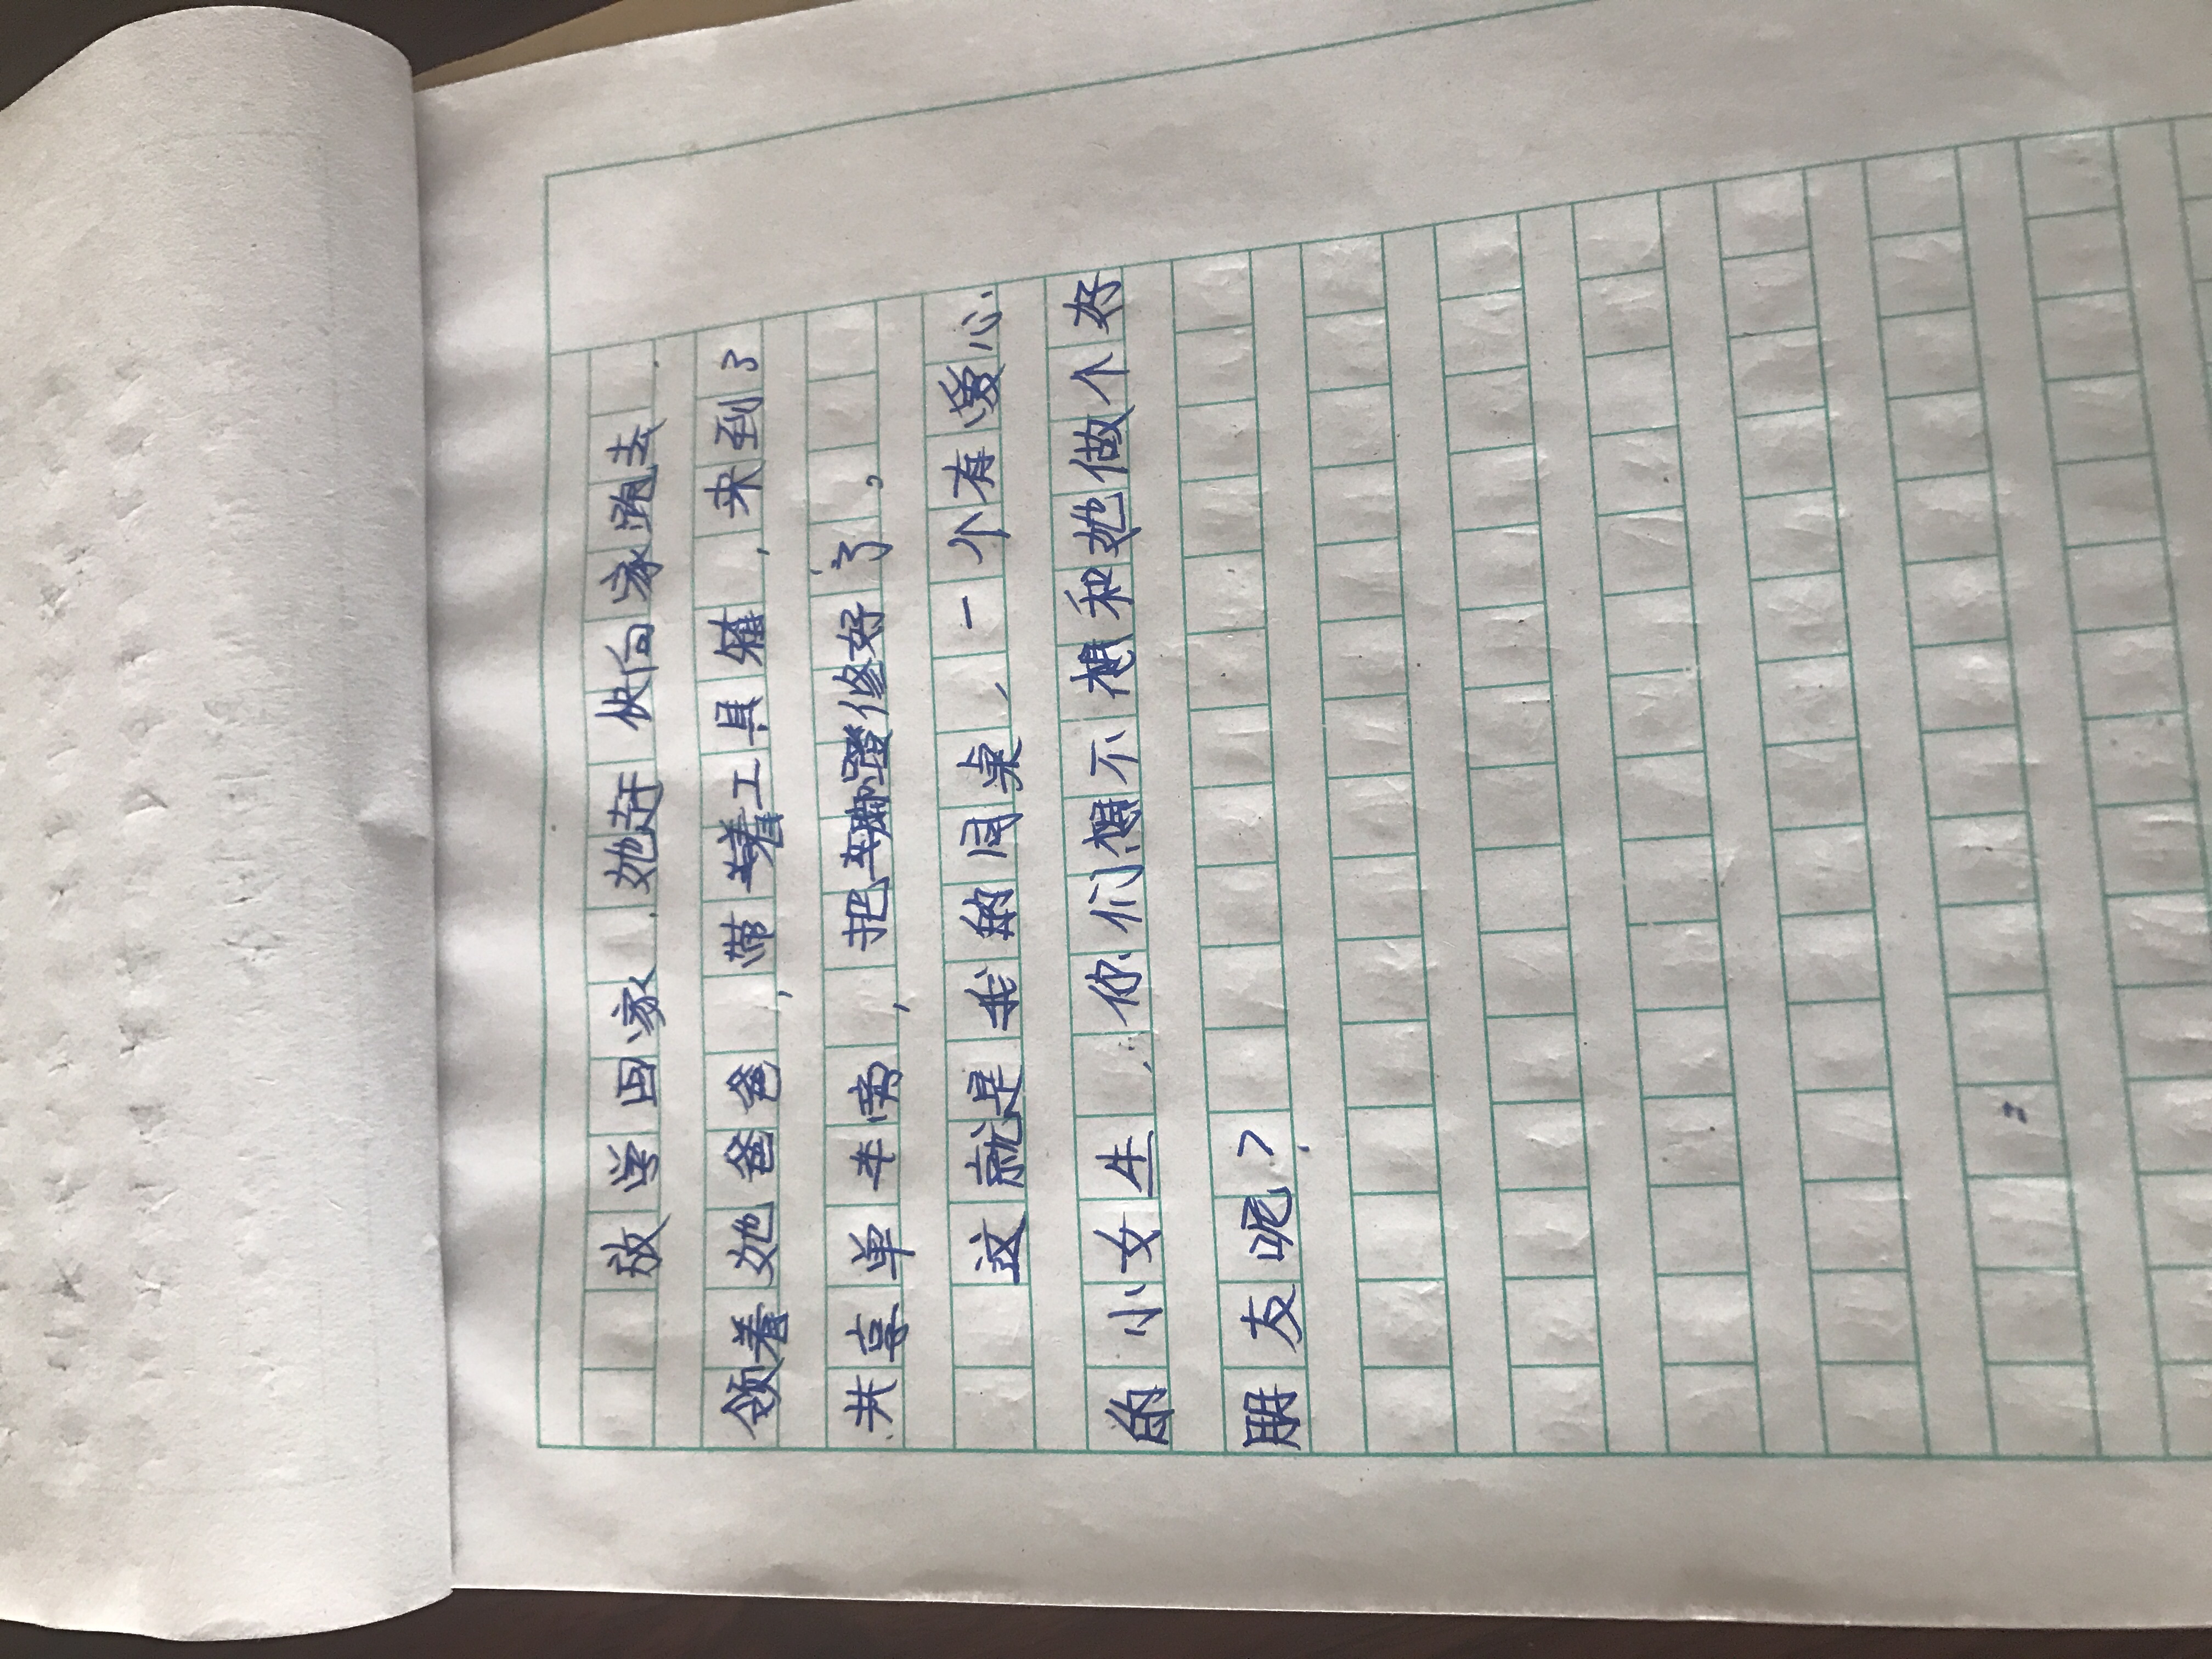 放学回家，她赶快向家跑去，
领着她爸爸，带着工具箱，来到了
共享单车旁，把车脚蹬修好了。
这就是我的同桌，一个有爱心
的小女生，你们想不想和她做个好
朋友呢？